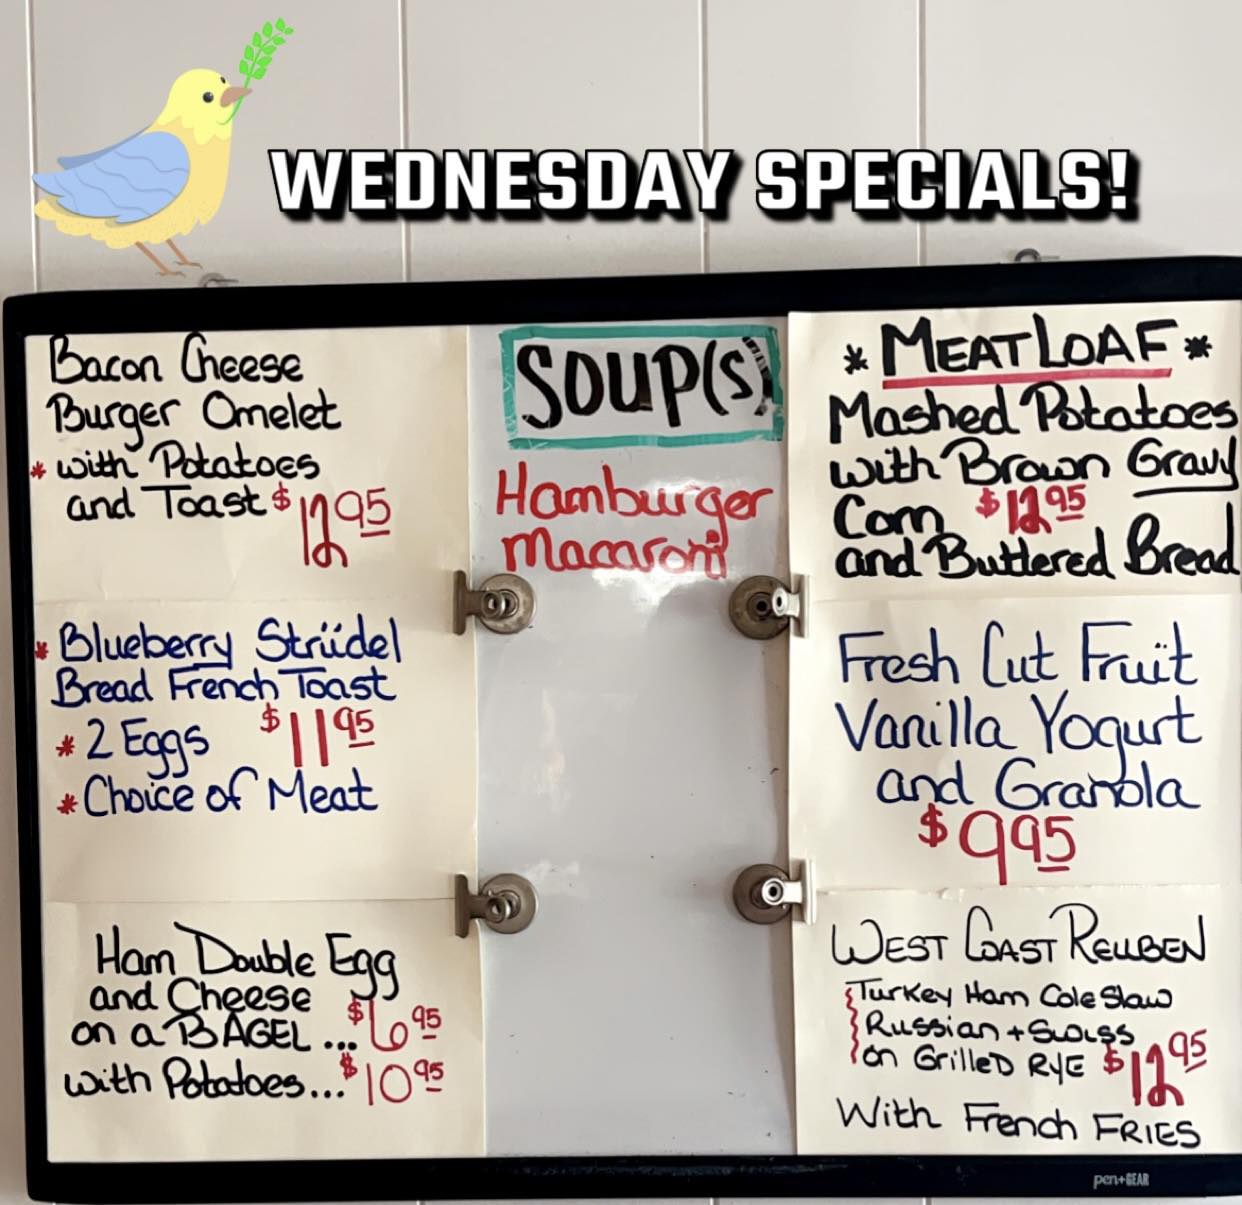 WEDNESDAY SPECIALS!
Bacon Cheese
Burger Omelet
* with Potatoes
and Toast $12.95
* Blueberry Strüdel
Bread French Toast
* 2 Eggs $11.95
* Choice of Meat
Ham Double Egg
and Cheese
on a BAGEL ... $6.95
with Potatoes... $10.95
SOUP(s)
Hamburger
Macaroni
* MEATLOAF *
Mashed Potatoes
with Brown Gravy
Corn $12.95
and Buttered Bread
Fresh Cut Fruit
Vanilla Yogurt
and Granola
$9.95
WEST COAST REUBEN
Turkey Ham Cole Slaw
Russian + Swiss
on Grilled Rye $12.95
With French FRIES
pen+GEAR